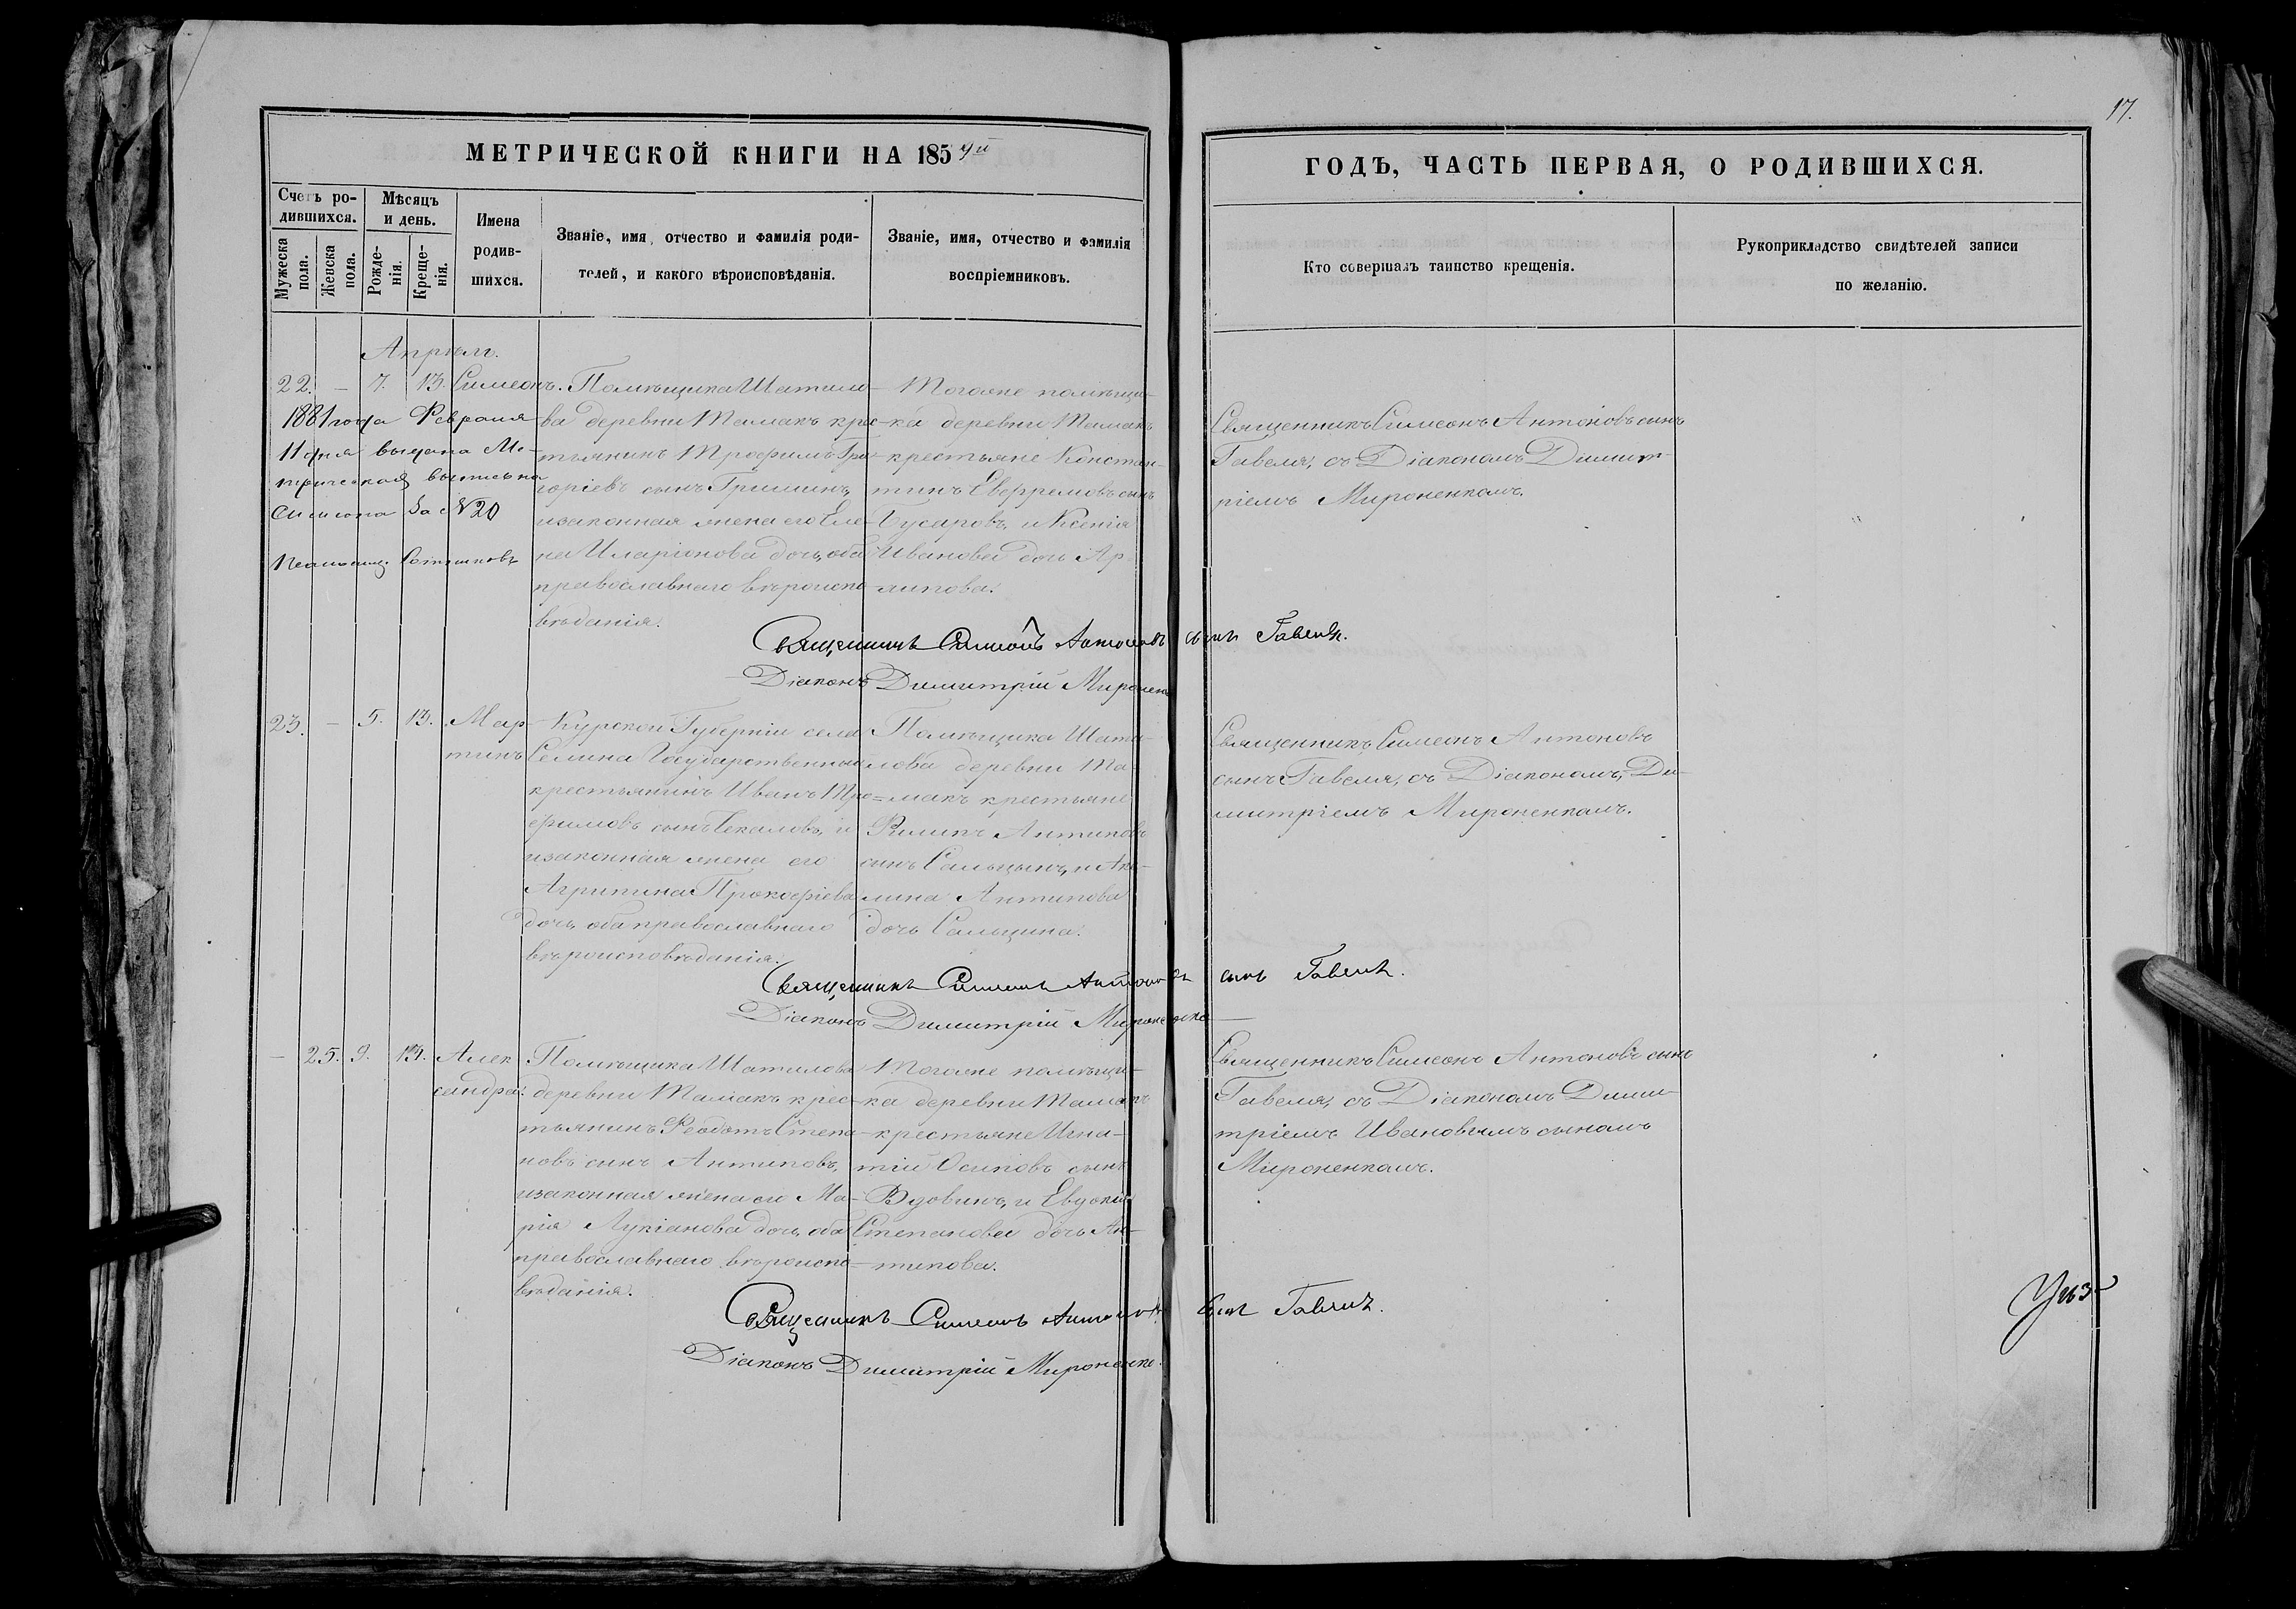 17.
МЕТРИЧЕСКОЙ КНИГИ НА 185
ГОДЪ, ЧАСТЬ ПЕРВАЯ, О РОДИВШИХСЯ.
Счетъ ро-
дившихся.
Мужеска
пола.
Женска
пола.
Мѣсяцъ
и день.
Рожде-
нія.
Креще-
нія.
Имена
родив-
шихся.
Званіе, имя, отчество и фамилія роди-
телей, и какого вѣроисповѣданія.
Званіе, имя, отчество и фамилія
воспріемниковъ.
Кто совершалъ таинство крещенія.
Рукоприкладство свидѣтелей записи
по желанію.
Апрѣль.
22. – 7. 13. Симеонъ.
1881 года Февраля
11 дня выдана Ме-
трическая выпись на
Симеона за №20
Помѣщика Шатило-
ва деревни Тамакъ крес-
тьянинъ Трофимъ Гри-
горіевъ сынъ Гришинъ,
и законная жена его Еле-
на Иларіонова дочь, оба
православнаго вѣроиспо-
вѣданія.
Тогоже помѣщи-
ка деревни Тамакъ
крестьяне Констан-
тинъ Евфремовъ сынъ
Бусаровъ, и Ксенія
Иванова дочь Ар-
Священникъ Симеонъ Антоновъ сынъ
Гавеля, съ Діакономъ Димит-
ріемъ Мироненкомъ.
Священникъ Симеонъ Антоновъ сынъ Гавеля.
Діаконъ Димитрій Мироненко
23. – 5. 13. Мар-
тинъ
Курской Губерніи села
Селина Государственный
крестьянинъ Иванъ Тро-
фимовъ сынъ Секаловъ, и
и законная жена его
Агрипина Прокофіева
дочь, оба православнаго
вѣроисповѣданія.
Помѣщика Шати-
лова деревни Та-
макъ крестьяне
Филипъ Антиповъ
сынъ Сальцынъ, и Аку-
лина Антипова
дочь Сальцина.
Священникъ Симеонъ Антоновъ
сынъ Гавеля, съ Діакономъ Ди-
митріемъ Мироненкомъ.
Священникъ Симеонъ Антоновъ сынъ Гавеля.
Діаконъ Димитрій Мироненко
– 25. 9. 13. Алек-
сандра.
Помѣщика Шатилова
деревни Тамакъ крес-
тьянинъ Феодотъ Степа-
новъ сынъ Антиповъ,
и законная жена его Ма-
рія Лукіанова дочь, оба
православнаго вѣроиспо-
вѣданія.
Тогоже помѣщи-
ка деревни Тамакъ
крестьяне Игна-
тій Осиповъ сынъ
Вдовинъ, и Евдокія
Степанова дочь Ан-
типова.
Священникъ Симеонъ Антоновъ сынъ
Гавеля, съ Діакономъ Дими-
тріемъ Ивановымъ сыномъ
Мироненкомъ.
Священникъ Симеонъ Антоновъ сынъ Гавеля.
Діаконъ Димитрій Мироненко.